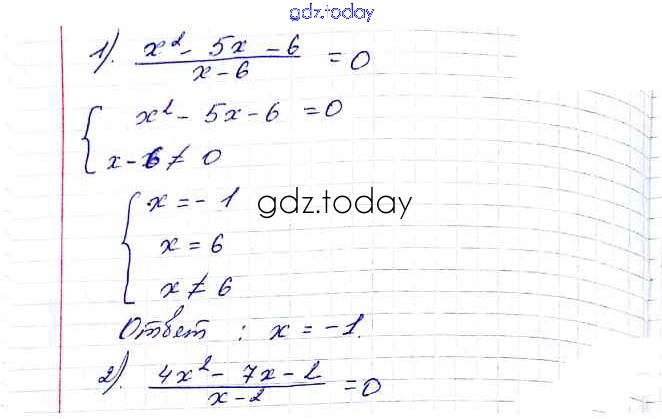 gdz.today
1). x² - 5x - 6 / x - 6 = 0
{ x² - 5x - 6 = 0
x - 6 ≠ 0
{ x = -1 gdz.today
x = 6
x ≠ 6
Ответ : x = -1.
2). 4x² - 7x - 2 / x - 2 = 0